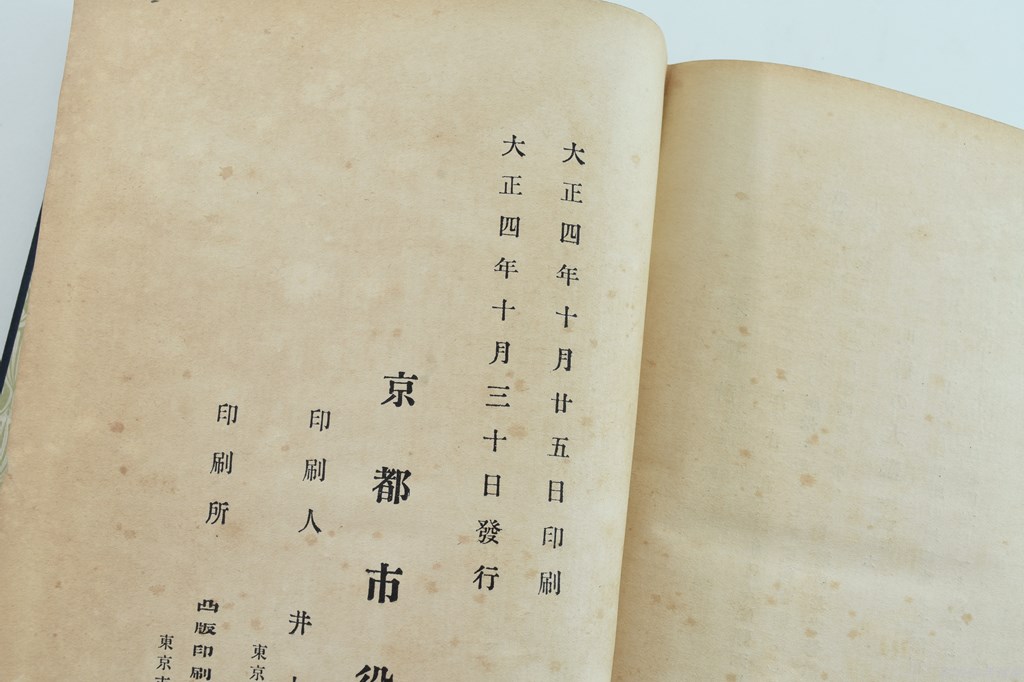 大正四年十月廿五日印刷
大正四年十月三十日發行
京都市役
印刷人
井
東京
印刷所
凸版印刷
東京市